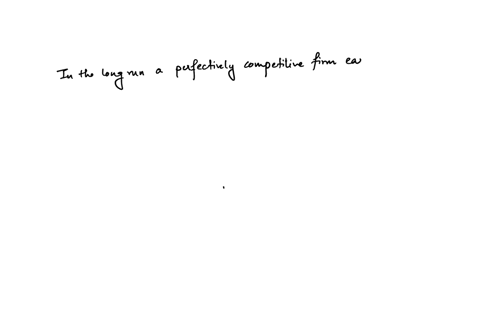 In the long run a perfectively competitive firm ea